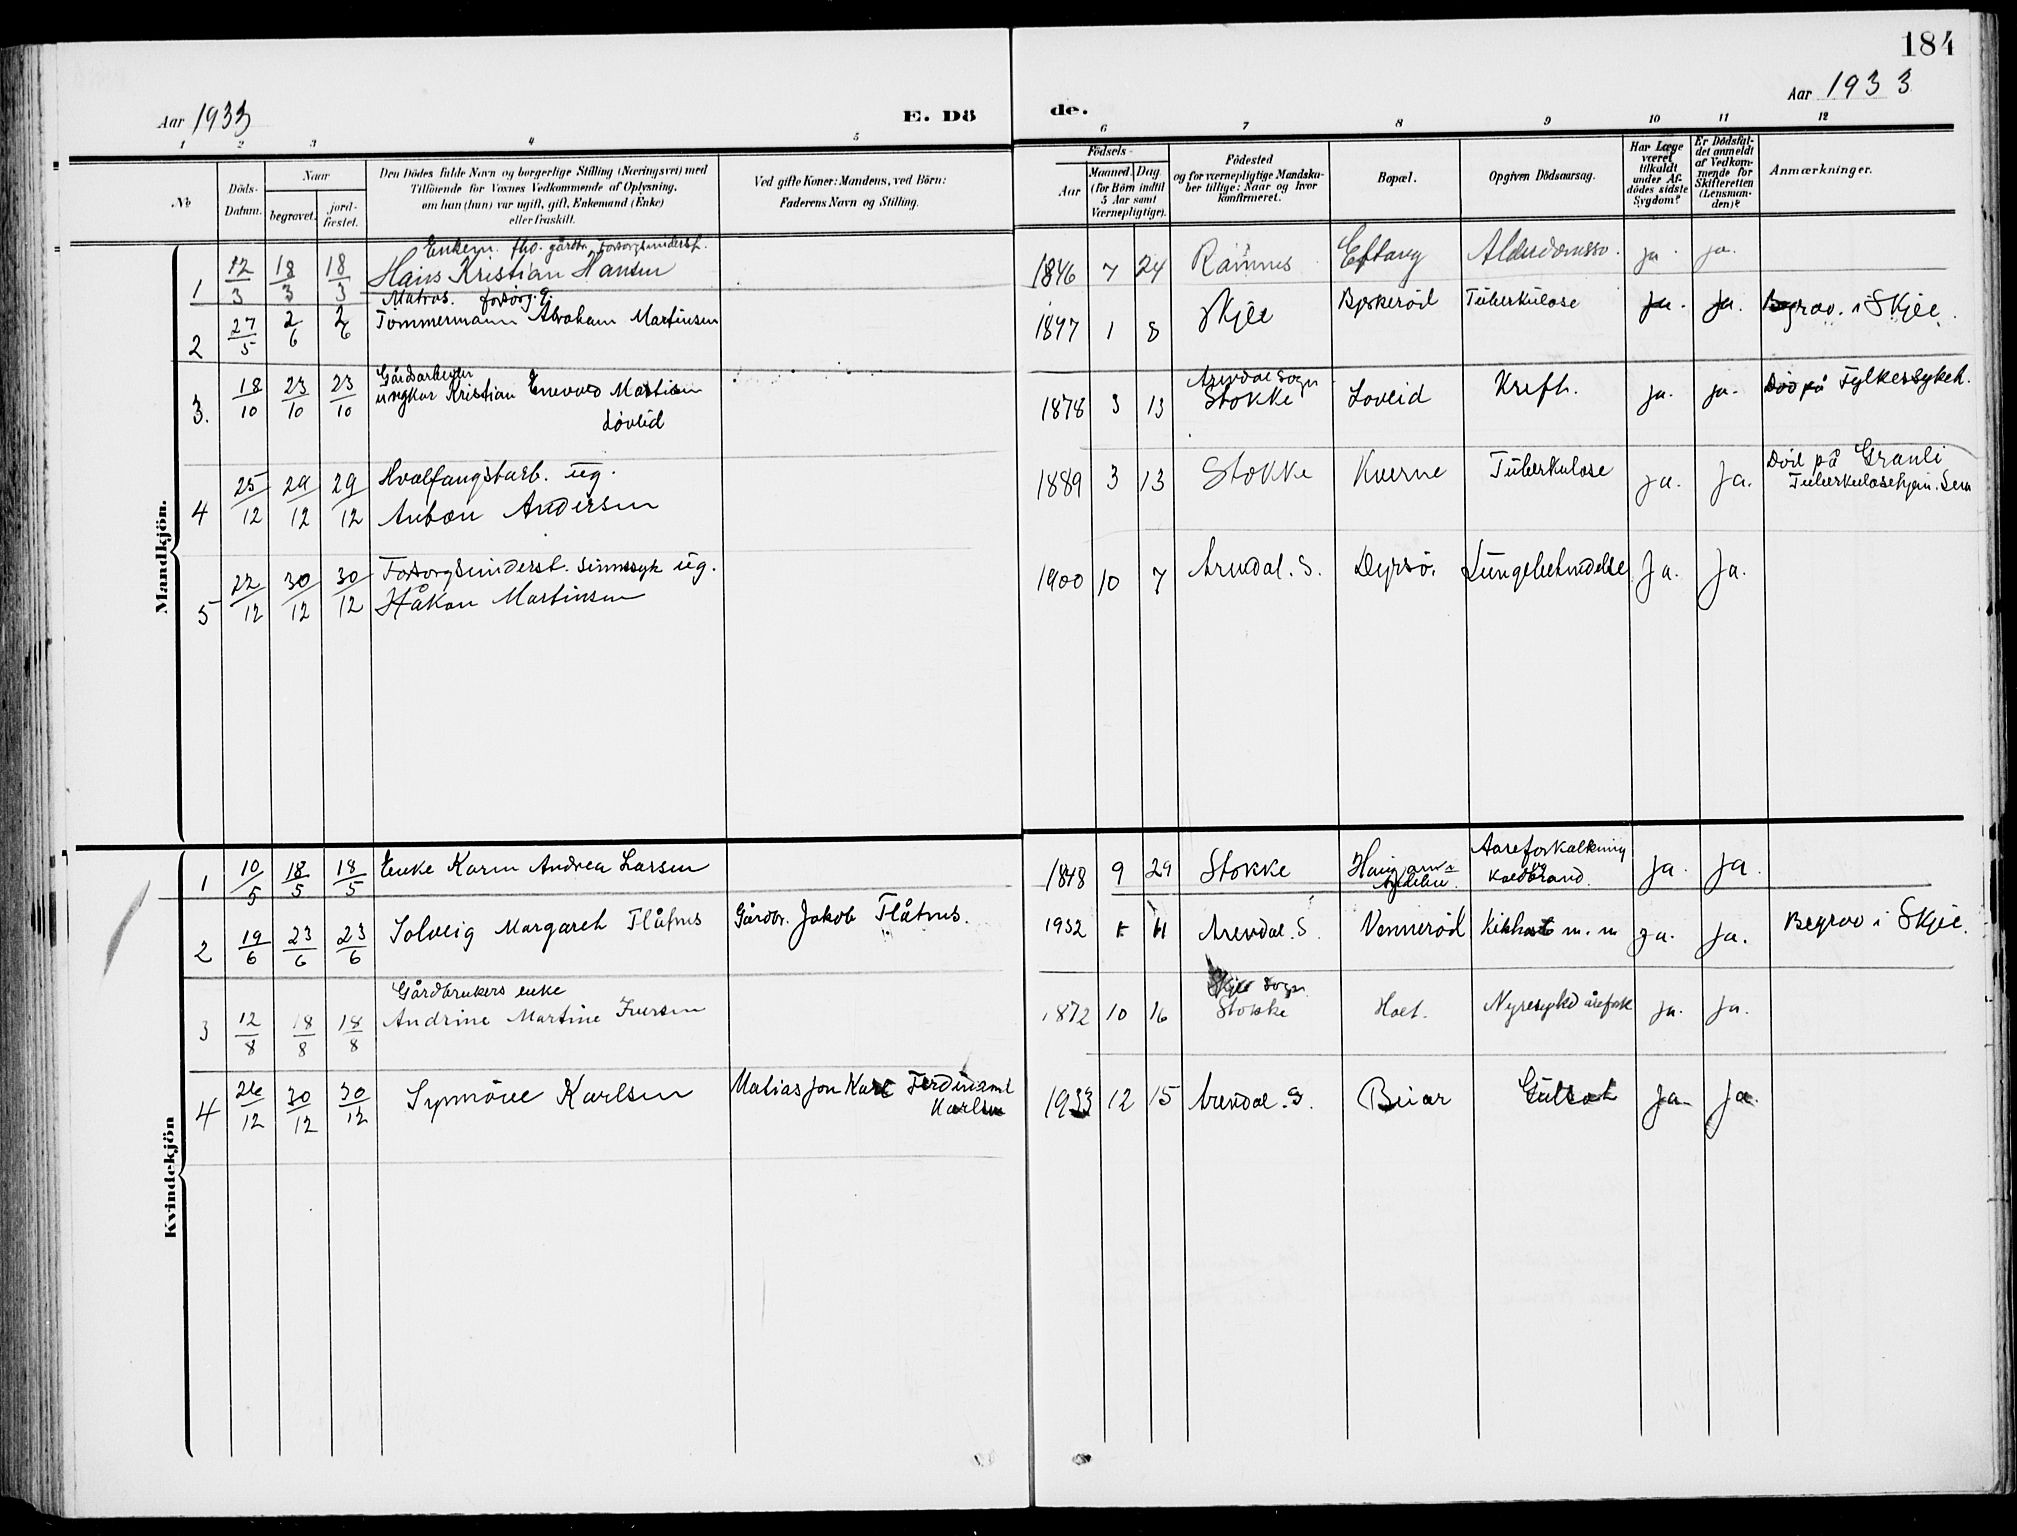 184
Aar 1933
E. Dö de.
Aar 1933
1 2 3 4 5 6 7 8 9 10 11 12
No
Döds-Datum.
Naar
begravet.
jord-fæstet.
Den Dödes fulde Navn og borgerlige Stilling (Næringsvei) med
Tilföiende for Voxnes Vedkommende af Oplysning,
om han (hun) var ugift, gift, Enkemand (Enke)
eller fraskilt.
Ved gifte Koner: Mandens, ved Börn:
Faderens Navn og Stilling.
Födsels-
Aar
Maaned. Dag
(for Börn indtil
5 Aar samt
Værnepligtige).
Födested
og for værnepligtige Mandska-
ber tillige: Naar og hvor
konfirmeret.
Bopæl.
Opgiven Dödsaarsag.
Har Læge
været
tilkaldt
under Af-
dödes sidste
Sygdom?
Er Dödsfal-
det anmeldt
af Vedkom-
mende for
Skifteretten
(Lensman-
den)?
Anmærkninger.
Mandkjön.
Enkem. fho. gårdbr. forsorgsunderst.
1 12/3 18/3 18/3 Hans Kristian Hansen 1846 7 24 Ramnes Eftang Alderdomssv. ja. ja.
Matros. forsorg.
2 27/5 2/6 2/6 Tömmermann Abraham Martinsen 1877 1 8 Skjee Byskeröd Tuberkulose ja. ja. Begrav. i Skjee.
Gårdsarbeider
3. 18/10 23/10 23/10 ungkar Kristian Enevald Martinsen 1878 3 13 Arendal sogn Stokke Loveid Kreft. ja. ja. Död på Fylkessykeh.
Lövlid
4 25/12 29/12 29/12 Hvalfangstarb. ug. 1889 3 13 Stokke Kverne Tuberkulose ja. ja. Död på Granli
Anton Andersen Tuberkulosehjem. Sem
5 22/12 30/12 30/12 Forsorgsunderst. sinnssyk ug. 1900 10 7 Arendal. S. Dyrsö. Lungebetendelse ja. ja.
Håkon Martinsen
Kvindekjön
1 10/5 18/5 18/5 Enke Karen Andrea Larsen 1848 9 29 Stokke Haugan i Andebu. Aareforkalkning og Koldbrand. ja. ja.
2 19/6 23/6 23/6 Solveig Margareth Flåtnes Gårdbr. Jakob Flåtnes. 1932 11 Arendal. S. Vennerød Kikhoste m. m ja. ja. Begrav i Skjee.
Gårdbrukers enke
3 12/8 18/8 18/8 Andrine Martine Iversen 1872 10 16 Skjee sogn Stokke Hoet. Nyresykd årefork ja. ja.
4 26/12 30/12 30/12 Synnöve Karlsen Matiasjon Karl Ferdinand 1933 12 15 Arendal. S. Buar Gulsot ja. ja.
Karlsen